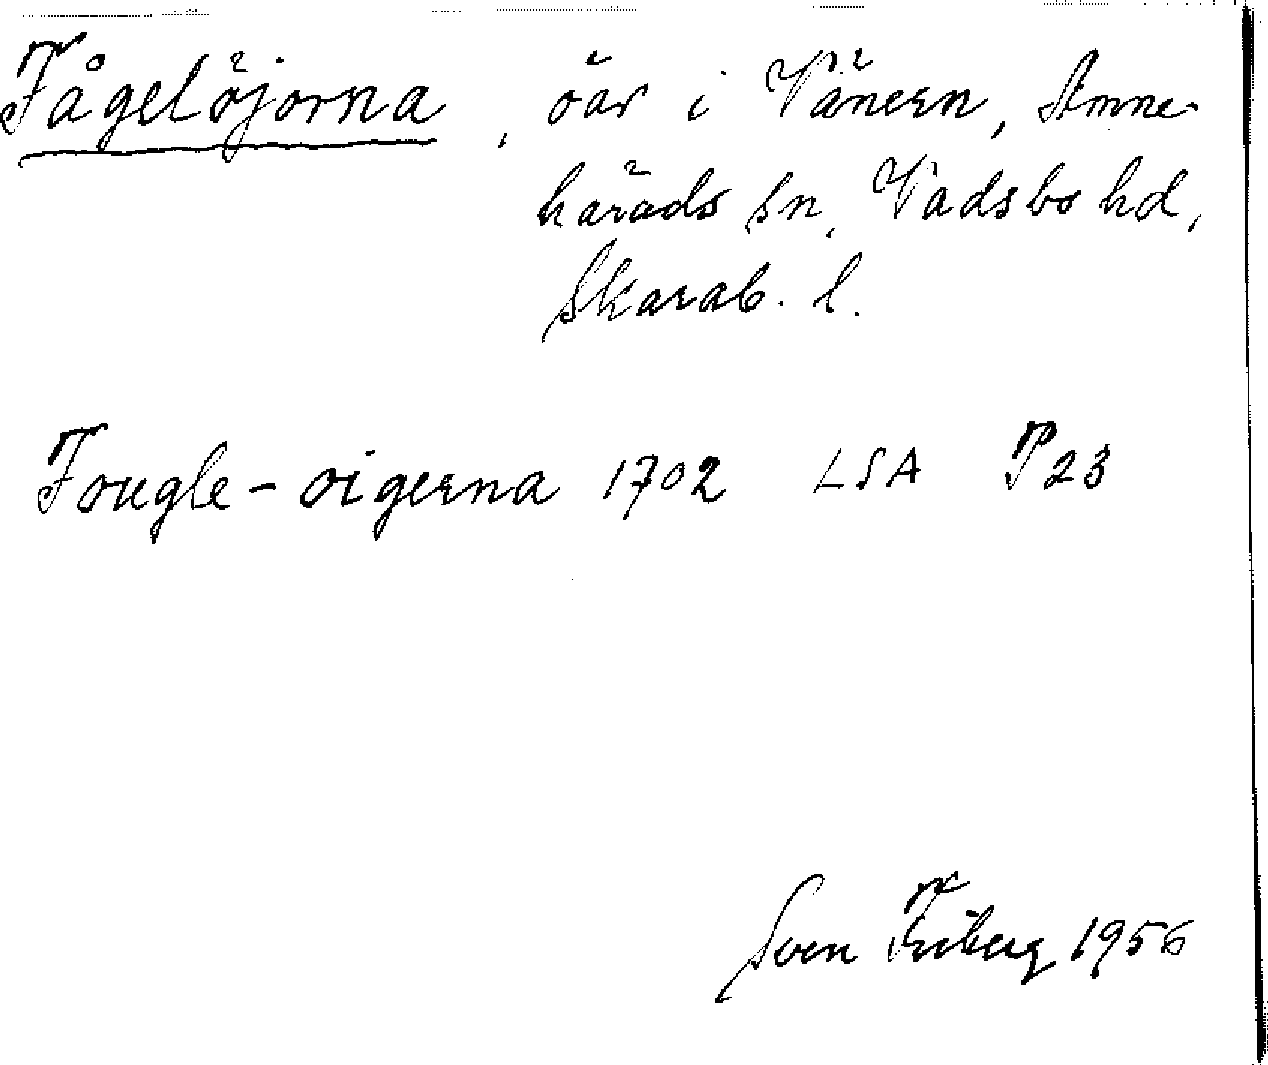 Fågelöjorna, öar i Vänern, Amne-
häräds sn, Vadsbo hd,
Skarab. l.
Fougle-oigerna 1702 LSA P23
Sven Friberg 1956